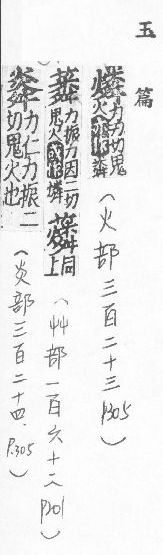 玉篇
力刃切鬼火
(火部三百二十三 P.305)
力振力因二切鬼火 上同
(艸部一百六十二 P.301)
粦力仁力振二切鬼火也
(炎部三百二十四.P.305)